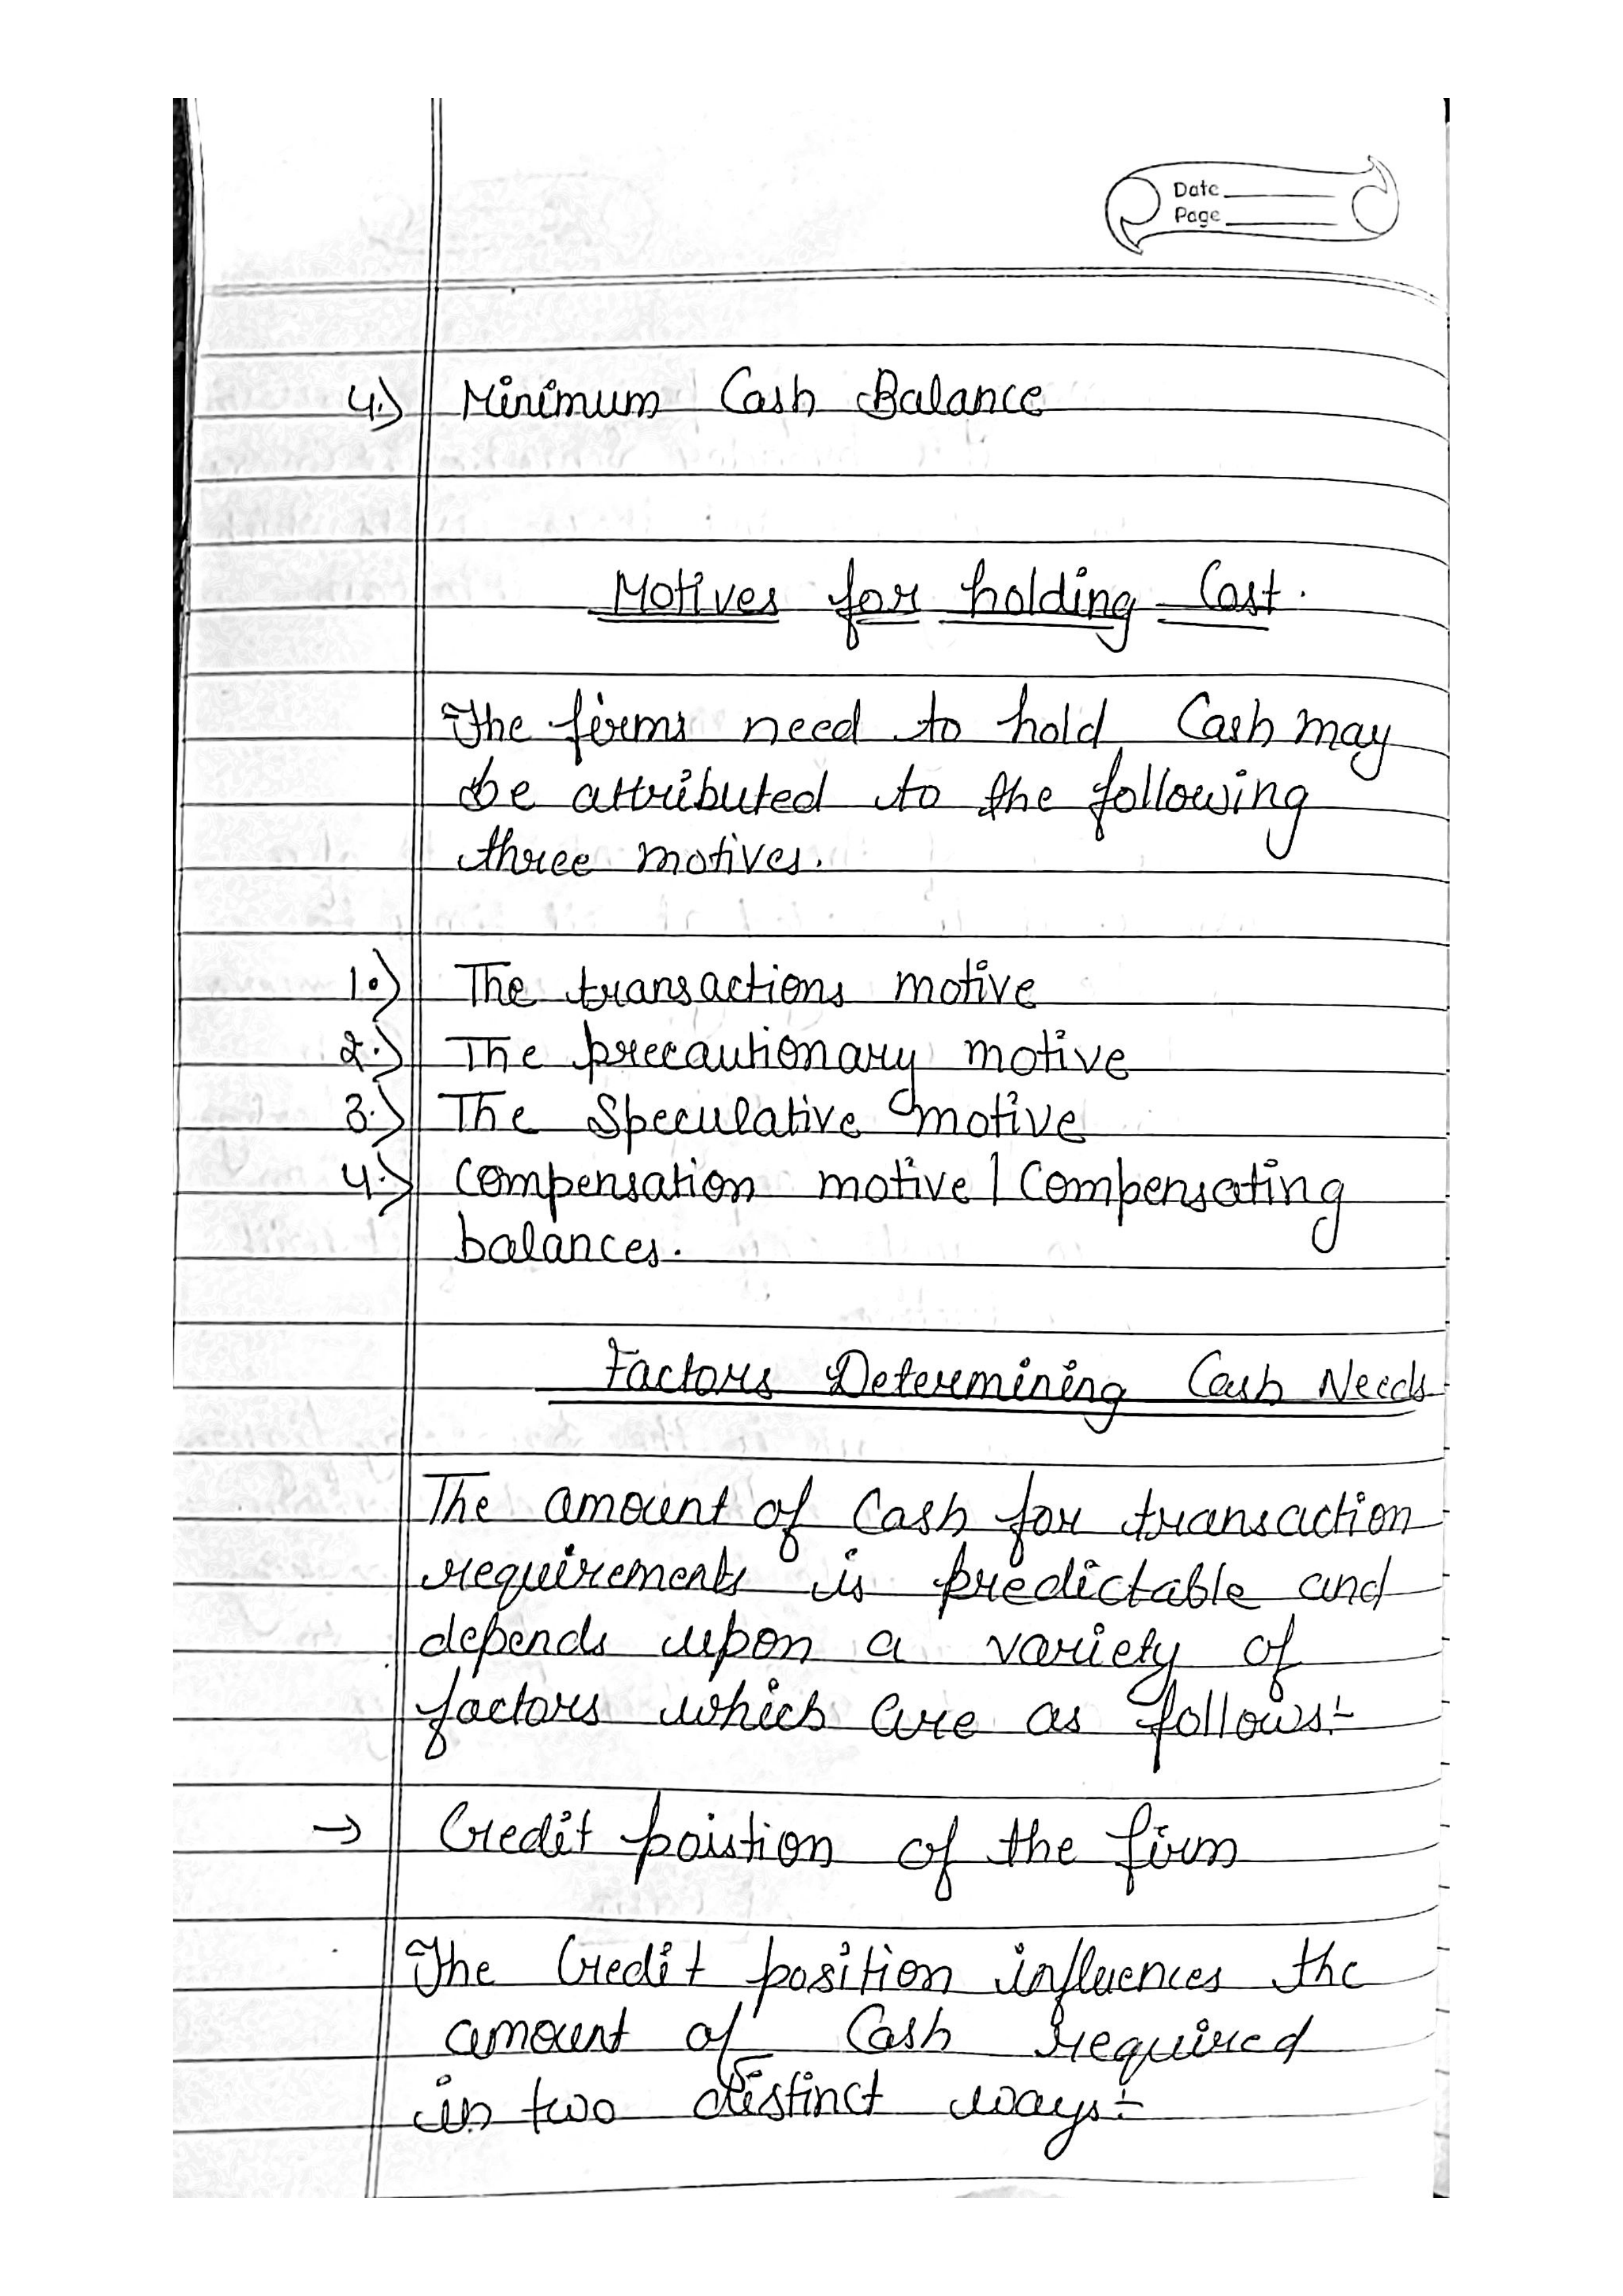 Date
Page
4.) Minimum Cash Balance
Motives for holding Cost.
The firms need to hold Cash may
be attributed to the following
three motives.
1.) The transactions motive
2.) The precautionary motive
3.) The Speculative motive
4.) Compensation motive | Compensating
balances.
Factors Determining Cash Needs
The amount of Cash for transaction
requirements is predictable and
depends upon a variety of
factors which are as follows:-
→ Credit poistion of the firm
The Credit position influences the
amount of Cash required
in two distinct ways:-